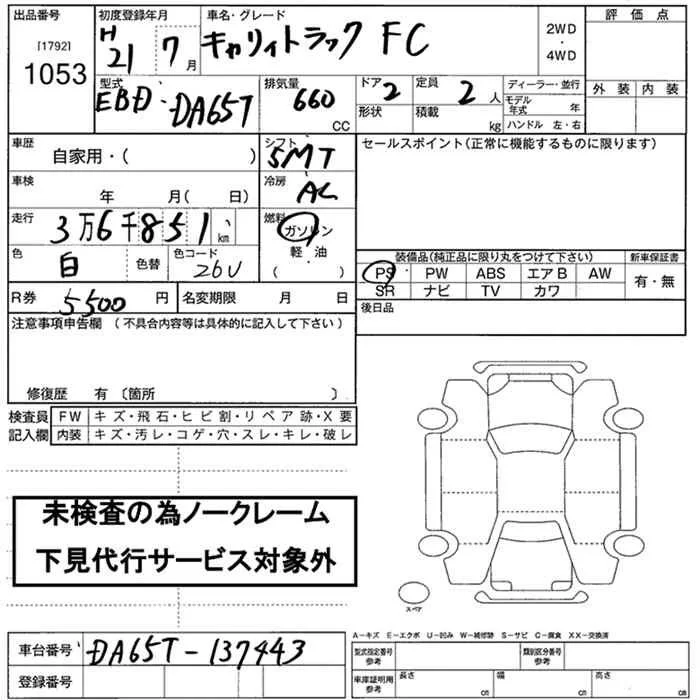 出品番号 初度登録年月 車名・グレード 評価点
[1792] 1053
H 21 7月 キャリィトラック FC
2WD・4WD
外装 内装
型式 EBD-DA65T
排気量 660 CC
ドア 2 形状
定員 2人 積載 kg
ディーラー・並行
モデル年式 年
ハンドル 左・右
車歴 自家用・( )
シフト 5MT
セールスポイント(正常に機能するものに限ります)
車検 年 月(日)
冷房 AC
走行 3万6千851km
燃料 ガソリン 軽・油 ( )
色 白 色替 色コード 26U
装備品(純正品に限り丸をつけて下さい) 新車保証書
PS PW ABS エアB AW 有・無
SR ナビ TV カワ
R券 5500円 名変期限 月 日
後日品
注意事項申告欄 (不具合内容等は具体的に記入して下さい)
修復歴 有 〔箇所 〕
検査員記入欄
FW キズ・飛石・ヒビ割・リペア跡・X要
内装 キズ・汚レ・コゲ・穴・スレ・キレ・破レ
未検査の為ノークレーム
下見代行サービス対象外
スペア
A-キズ E-エクボ U-凹み W-補修跡 S-サビ C-腐食 XX-交換済
車台番号 DA65T-137443
型式指定番号 参考 類別区分番号 参考
登録番号
車庫証明用 参考 長さ cm 幅 cm 高さ cm